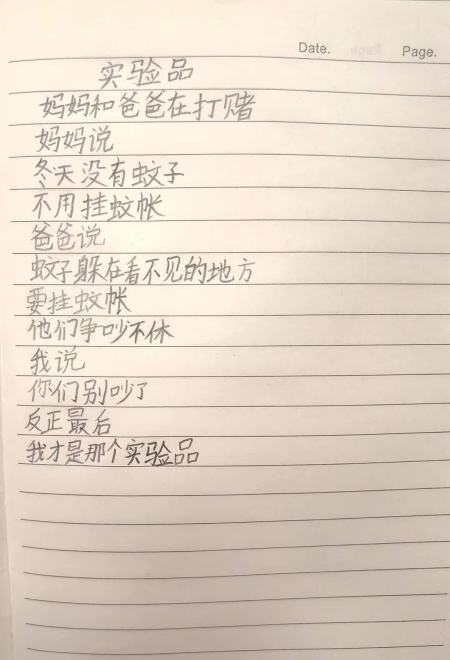 Date.
Page.
实验品
妈妈和爸爸在打赌
妈妈说
冬天没有蚊子
不用挂蚊帐
爸爸说
蚊子躲在看不见的地方
要挂蚊帐
他们争吵不休
我说
你们别吵了
反正最后
我才是那个实验品